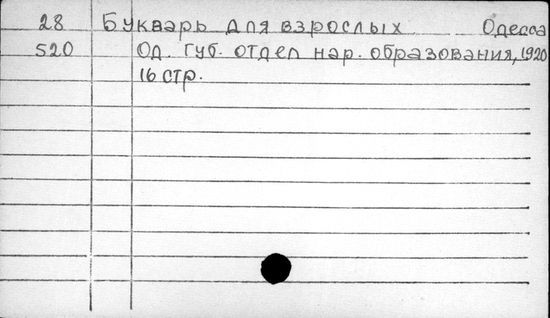 28 Букварь для взрослых Одесса
520 Од. Губ. отдел нар. образования, 1920
16 стр.